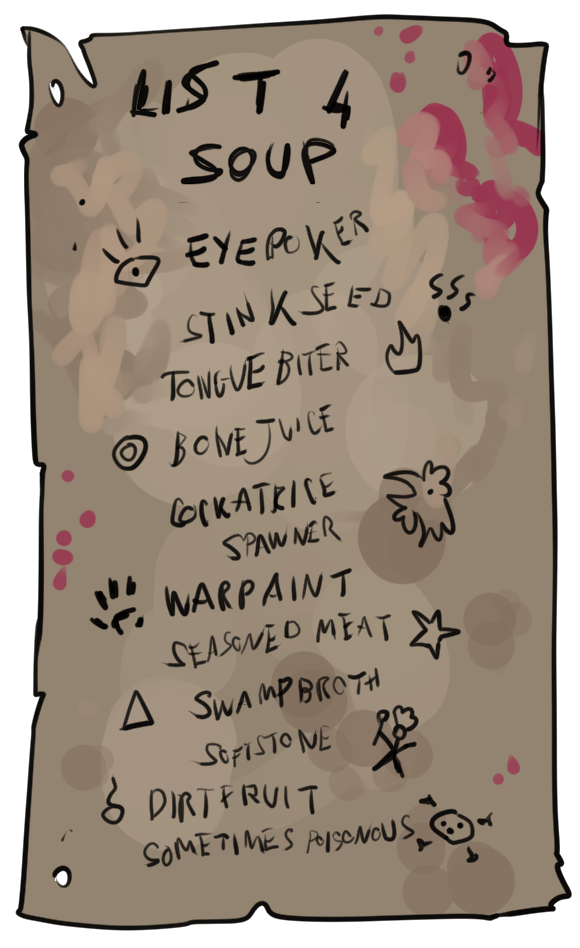 LIST 4
SOUP
EYEPOKER
STINKSEED
TONGUE BITER
BONEJUICE
COCKATRICE
SPAWNER
WARPAINT
SEASONED MEAT
SWAMPBROTH
SOFTSTONE
DIRTFRUIT
SOMETIMES POISONOUS